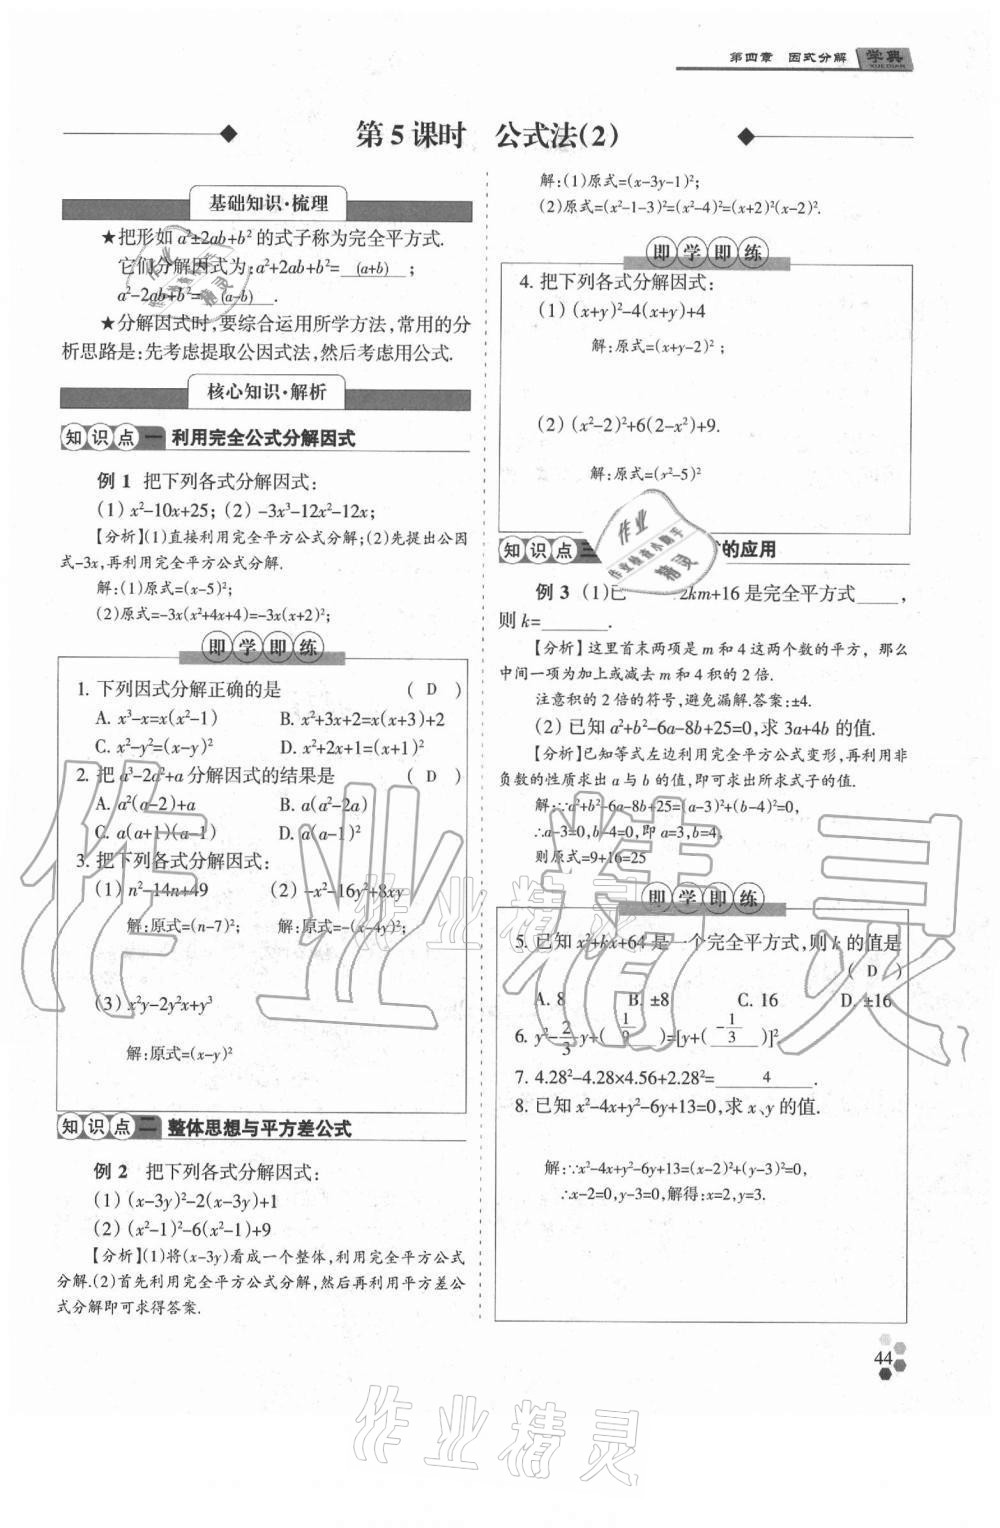 第四章 因式分解 学典
XUE DIAN
第5课时 公式法(2)
基础知识·梳理
★把形如a²±2ab+b²的式子称为完全平方式.
它们分解因式为:a²+2ab+b²=(a+b);
a²-2ab+b²=(a-b).
★分解因式时,要综合运用所学方法,常用的分
析思路是:先考虑提取公因式法,然后考虑用公式.
核心知识·解析
知识点一 利用完全公式分解因式
例1 把下列各式分解因式:
(1) x²-10x+25; (2) -3x³-12x²-12x;
【分析】(1)直接利用完全平方公式分解;(2)先提出公因
式-3x,再利用完全平方公式分解.
解:(1)原式=(x-5)²;
(2)原式=-3x(x²+4x+4)=-3x(x+2)²;
即学即练
1. 下列因式分解正确的是 ( D )
A. x³-x=x(x²-1) B. x²+3x+2=x(x+3)+2
C. x²-y²=(x-y)² D. x²+2x+1=(x+1)²
2. 把a³-2a²+a分解因式的结果是 ( D )
A. a²(a-2)+a B. a(a²-2a)
C. a(a+1)(a-1) D. a(a-1)²
3. 把下列各式分解因式:
(1) n²-14n+49 (2) -x²-16y²+8xy
解:原式=(n-7)²; 解:原式=-(x-4y)²;
(3) x²y-2y²x+y³
解:原式=(x-y)²
知识点二 整体思想与平方差公式
例2 把下列各式分解因式:
(1) (x-3y)²-2(x-3y)+1
(2) (x²-1)²-6(x²-1)+9
【分析】(1)将(x-3y)看成一个整体,利用完全平方公式
分解.(2)首先利用完全平方公式分解,然后再利用平方差公
式分解即可求得答案.
解:(1)原式=(x-3y-1)²;
(2)原式=(x²-1-3)²=(x²-4)²=(x+2)²(x-2)².
即学即练
4. 把下列各式分解因式:
(1) (x+y)²-4(x+y)+4
解:原式=(x+y-2)²;
(2) (x²-2)²+6(2-x²)+9.
解:原式=(x²-5)²
知识点三 的应用
例3 (1)已 2km+16是完全平方式____,
则k=______.
【分析】这里首末两项是m和4这两个数的平方,那么
中间一项为加上或减去m和4积的2倍.
注意积的2倍的符号,避免漏解.答案:±4.
(2) 已知a²+b²-6a-8b+25=0,求3a+4b的值.
【分析】已知等式左边利用完全平方公式变形,再利用非
负数的性质求出a与b的值,即可求出所求式子的值.
解:∵a²+b²-6a-8b+25=(a-3)²+(b-4)²=0,
∴a-3=0,b-4=0,即a=3,b=4,
则原式=9+16=25
即学即练
5. 已知x²+kx+64是一个完全平方式,则k的值是
( D )
A. 8 B. ±8 C. 16 D. ±16
6. y²-2/3 y+( 1/9 )=[y+( -1/3 )]²
7. 4.28²-4.28×4.56+2.28²=4.
8. 已知x²-4x+y²-6y+13=0,求x、y的值.
解:∵x²-4x+y²-6y+13=(x-2)²+(y-3)²=0,
∴x-2=0,y-3=0,解得:x=2,y=3.
44
作业精灵
作业精灵
作业精灵
作业精灵
作业检查小助手